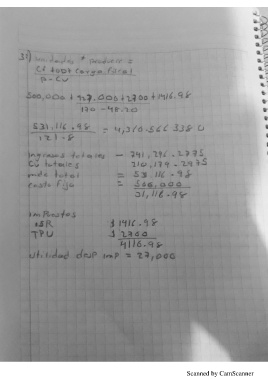 31) Unidades a producir =
CF + OOT Carga fiscal
P - CU
500,000 + 27,000 + 2700 + 1416.98
170 - 48.20
531,116.98 = 4,360.566338 U
121.8
Ingresos totales - 741,296.2775
CV totales 210,179.2975
mdc total = 531,116.98
costo fijo = 500,000
31,116.98
Impuestos
ISR $ 1416.98
TPU $ 2700
4116.98
Utilidad desp imp = 27,000
Scanned by CamScanner